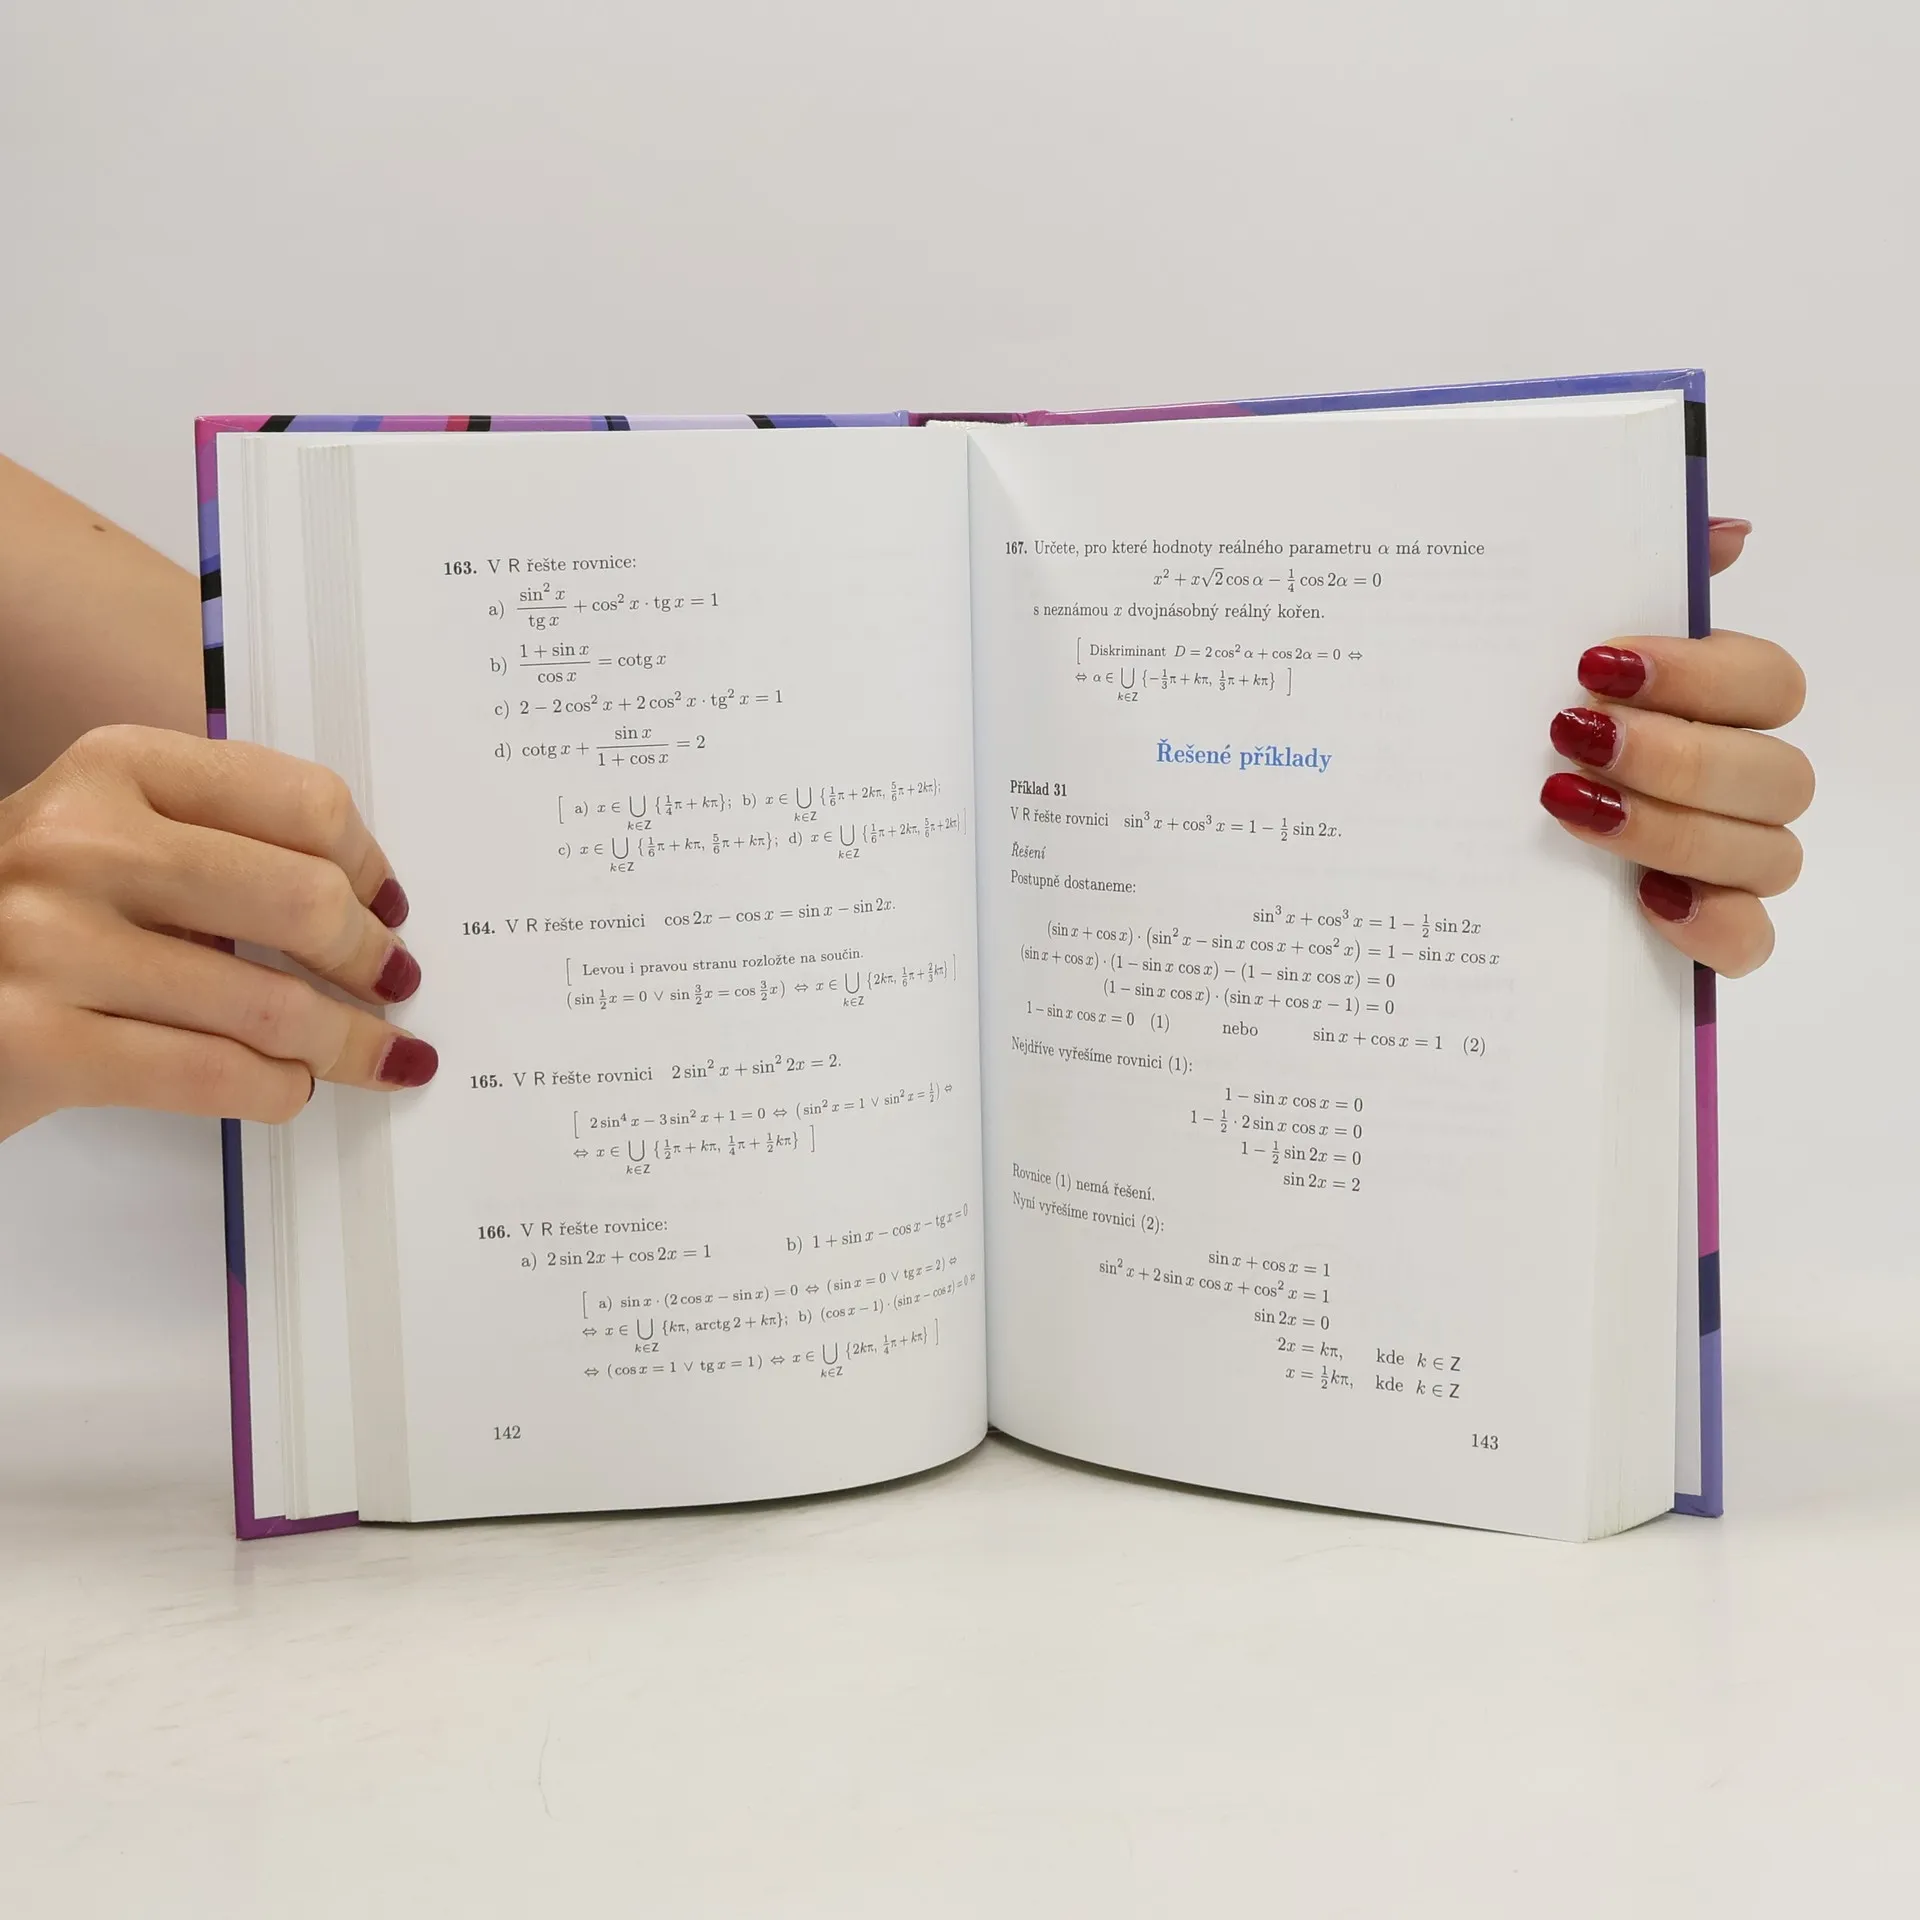 163. V R řešte rovnice:
a) sin² x / tg x + cos² x · tg x = 1
b) 1 + sin x / cos x = cotg x
c) 2 − 2 cos² x + 2 cos² x · tg² x = 1
d) cotg x + sin x / 1 + cos x = 2
[ a) x ∈ ⋃ k∈Z {1/4 π + kπ}; b) x ∈ ⋃ k∈Z {1/6 π + 2kπ, 5/6 π + 2kπ};
c) x ∈ ⋃ k∈Z {1/6 π + kπ, 5/6 π + kπ}; d) x ∈ ⋃ k∈Z {1/6 π + 2kπ, 5/6 π + 2kπ} ]
164. V R řešte rovnici cos 2x − cos x = sin x − sin 2x.
[ Levou i pravou stranu rozložte na součin.
(sin 1/2 x = 0 ∨ sin 3/2 x = cos 3/2 x) ⇔ x ∈ ⋃ k∈Z {2kπ, 1/6 π + 2/3 kπ} ]
165. V R řešte rovnici 2 sin² x + sin² 2x = 2.
[ 2 sin⁴ x − 3 sin² x + 1 = 0 ⇔ (sin² x = 1 ∨ sin² x = 1/2) ⇔
⇔ x ∈ ⋃ k∈Z {1/2 π + kπ, 1/4 π + 1/2 kπ} ]
166. V R řešte rovnice:
a) 2 sin 2x + cos 2x = 1 b) 1 + sin x − cos x − tg x = 0
[ a) sin x · (2 cos x − sin x) = 0 ⇔ (sin x = 0 ∨ tg x = 2) ⇔
⇔ x ∈ ⋃ k∈Z {kπ, arctg 2 + kπ}; b) (cos x − 1) · (sin x − cos x) = 0 ⇔
⇔ (cos x = 1 ∨ tg x = 1) ⇔ x ∈ ⋃ k∈Z {2kπ, 1/4 π + kπ} ]
142
167. Určete, pro které hodnoty reálného parametru α má rovnice
x² + x√2 cos α − 1/4 cos 2α = 0
s neznámou x dvojnásobný reálný kořen.
[ Diskriminant D = 2 cos² α + cos 2α = 0 ⇔
⇔ α ∈ ⋃ k∈Z {−1/3 π + kπ, 1/3 π + kπ} ]
Řešené příklady
Příklad 31
V R řešte rovnici sin³ x + cos³ x = 1 − 1/2 sin 2x.
Řešení
Postupně dostaneme:
sin³ x + cos³ x = 1 − 1/2 sin 2x
(sin x + cos x) · (sin² x − sin x cos x + cos² x) = 1 − sin x cos x
(sin x + cos x) · (1 − sin x cos x) − (1 − sin x cos x) = 0
(1 − sin x cos x) · (sin x + cos x − 1) = 0
1 − sin x cos x = 0 (1) nebo sin x + cos x = 1 (2)
Nejdříve vyřešíme rovnici (1):
1 − sin x cos x = 0
1 − 1/2 · 2 sin x cos x = 0
1 − 1/2 sin 2x = 0
sin 2x = 2
Rovnice (1) nemá řešení.
Nyní vyřešíme rovnici (2):
sin x + cos x = 1
sin² x + 2 sin x cos x + cos² x = 1
sin 2x = 0
2x = kπ, kde k ∈ Z
x = 1/2 kπ, kde k ∈ Z
143